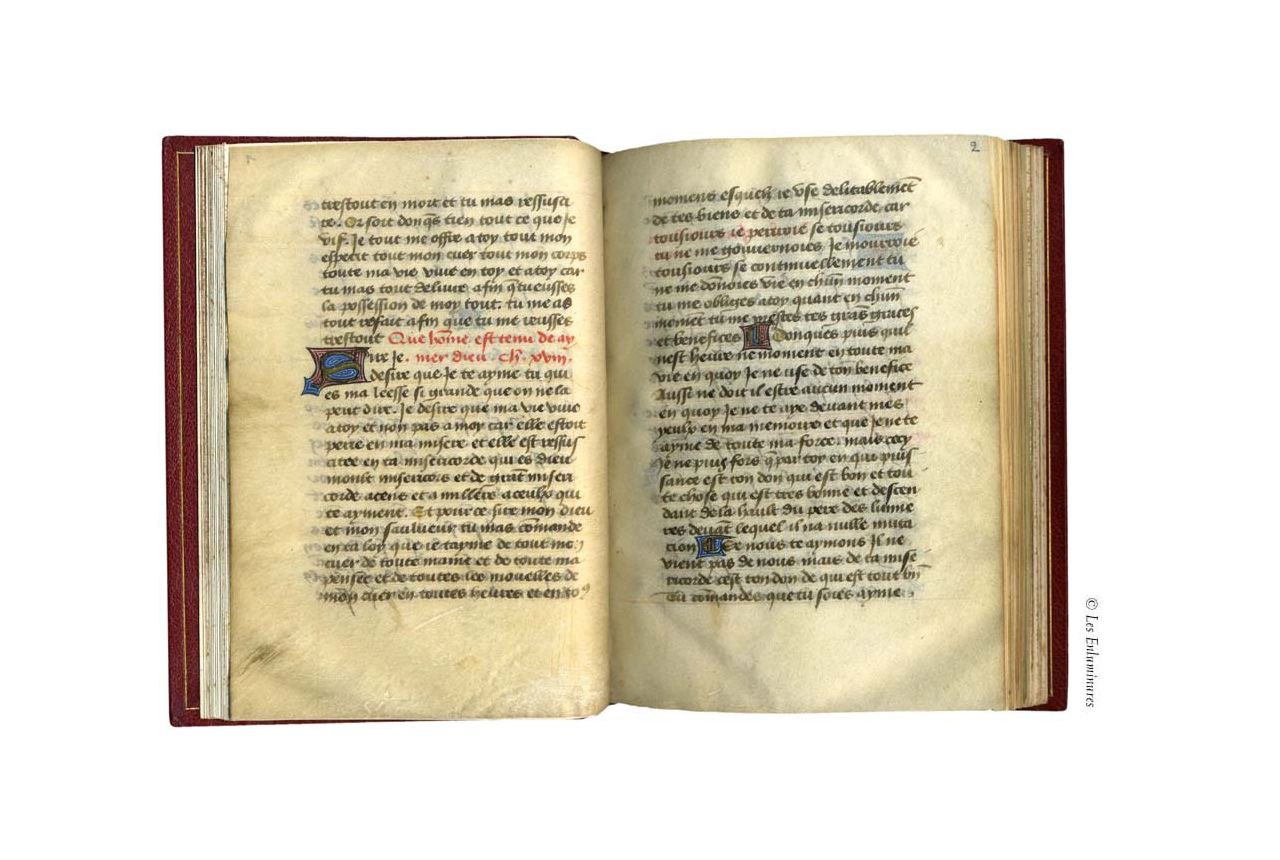 trestout en mort et tu mas ressusci
te. Or soit donq̄s tien tout ce que ie
vif. Je tout me offre a toy tout mon
esperit tout mon cuer tout mon corps
toute ma vie vive en toy et a toy car
tu mas tout delivre afin q̄ tu eusses
la possession de moy tout. tu me as
tout refait afin que tu me reusses
trestout Que hōme est tenu de ay
Sire Je. mer dieu. Ch. xviij.
desire que Je te ayme tu qui
es ma leesse si grande que on ne la
peut dire. Je desire que ma vie vive
a toy et non pas a moy car elle estoit
perie en ma misere et elle est ressus
citee en ta misericorde qui es dieu
moult misericors et de grāt miseri
corde a cens et a milliers a ceulx qui
te ayment. Et pour ce sire mon dieu
et mon saulveur tu mas cōmande
en ta loy que ie tayme de tout mon
cuer de toute mame et de toute ma
pensee et de toutes les mouelles de
mon cuer en toutes heures et en to9
2
momens esquelz ie vse delitablemēt
de tes biens et de ta misericorde car
tousiours ie perroie se tousiours
tu ne me gouvernoies. Je mourroie
tousiours se continuellement tu
ne me dōnoies vie en chūn moment
tu me obliges a toy quant en chūn
momēt tu me prestes tes grās graces
et benefices donques puis quil
nest heure ne moment en toute ma
vie en quoy Je ne use de ton benefice
Aussi ne doit il estre aucun moment
en quoy Je ne te aye devant mes
yeulx en ma memoire et que Je ne te
ayme de toute ma force. mais cecy
Je ne puis fors q̄ par toy en qui puis
sance est ton don qui est bon et tou
te chose qui est tres bonne et descen
dant de la hault du pere des lumie
res devāt lequel il na nulle muta
cion Ce nous te aymons Il ne
vient pas de nous mais de ta mise
ricorde cest ton don de qui est tout bn̄
Tu cōmandes que tu soies ayme
© Les Enluminures